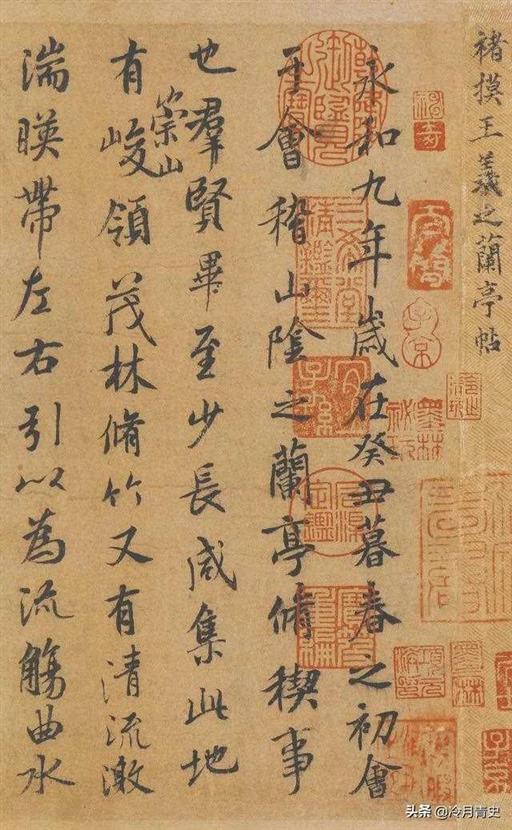 褚摸王羲之蘭亭帖
永和九年歲在癸丑暮春之初會
于會稽山陰之蘭亭脩稧事
也羣賢畢至少長咸集此地
有崇山峻領茂林脩竹又有清流激
湍暎帶左右引以為流觴曲水
三希堂精鑑璽
宜子孫
子京
墨林
头条 @冷月青史